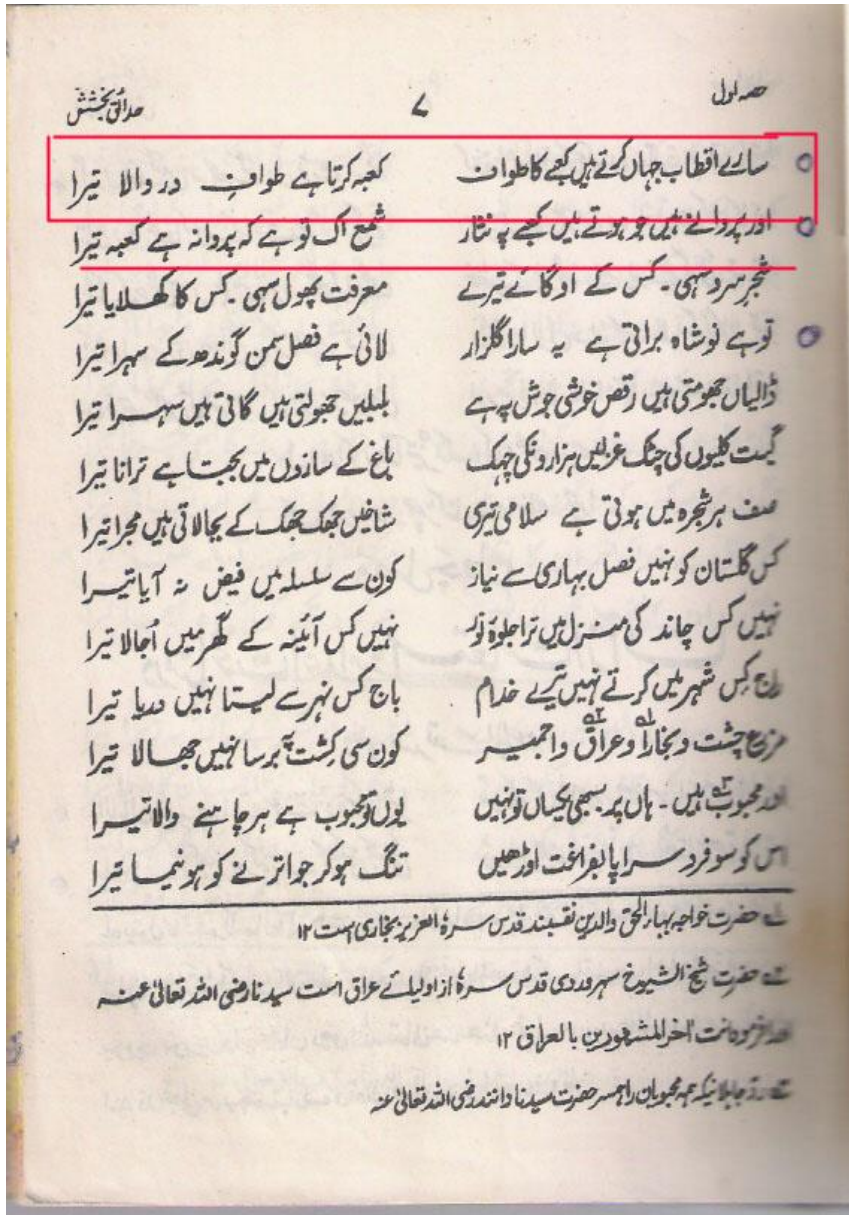 حصہ اول ۷ حدائق بخشش
سارے اقطاب جہاں کرتے ہیں کعبے کا طواف کعبہ کرتا ہے طواف در والا تیرا
اور پروانے ہیں جو ہوتے ہیں کعبے پہ نثار شمع اک تو ہے کہ پروانہ ہے کعبہ تیرا
شجر سرو سہی ۔ کس کے اوگائے تیرے معرفت پھول سہی ۔ کس کا کھلایا تیرا
تو ہے نوشاہ براتی ہے یہ سارا گلزار لائی ہے فصل سمن گوندھ کے سہرا تیرا
ڈالیاں جھومتی ہیں رقص خوشی جوش پہ ہے بلبلیں جھولتی ہیں گاتی ہیں سہرا تیرا
گیت کلیوں کی چٹک غزلیں ہزارونکی چہک باغ کے سازوں میں بجتا ہے ترانا تیرا
صف ہر شجرہ میں ہوتی ہے سلامی تیری شاخیں جھک جھک کے بجالاتی ہیں مجرا تیرا
کس گلستان کو نہیں فصل بہاری سے نیاز کون سے سلسلہ میں فیض نہ آیا تیرا
نہیں کس چاند کی منزل میں ترا جلوۂ نور نہیں کس آئینہ کے گھر میں اُجالا تیرا
راج کس شہر میں کرتے نہیں تیرے خدام باج کس نہر سے لیتا نہیں دریا تیرا
مزرع چشت و بخارا و عراق و اجمیر کون سی کشت پہ برسا نہیں جھالا تیرا
اور محبوب ہیں ۔ ہاں پر سبھی یکساں تو نہیں یوں تو محبوب ہے ہر چاہنے والا تیرا
اس کو سو فرد سراپا بفراغت اوڑھیں تنگ ہو کر جو اترنے کو ہو نیما تیرا
لہ حضرت خواجہ بہار الحق والدین نقشبند قدس سرہٗ العزیز بخاری است ۱۲
حضرت شیخ الشیوخ سہروردی قدس سرہٗ از اولیائے عراق است سیدنا رضی اللہ تعالیٰ عنہ
آخر المشہورین بالعراق ۱۲
ہمہ محبوبان را ہمسر حضرت سیدنا دانند رضی اللہ تعالیٰ عنہ